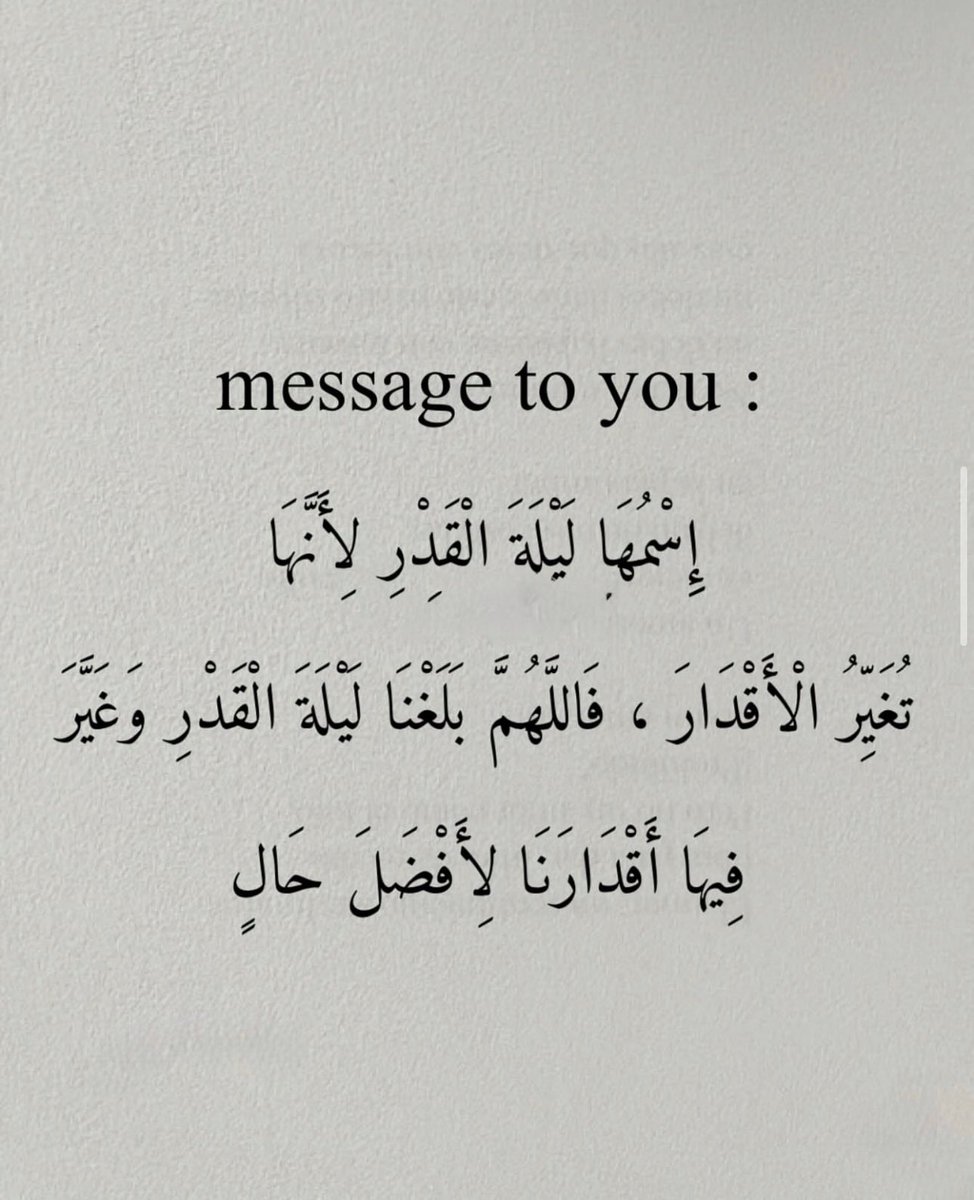 message to you :
إِسْمُهَا لَيْلَةَ الْقَدْرِ لِأَنَّهَا
تُغَيِّرُ الْأَقْدَارَ ، فَاللَّهُمَّ بَلَغْنَا لَيْلَةَ الْقَدْرِ وَغَيَّرَ
فِيهَا أَقْدَارَنَا لِأَفْضَلَ حَالٍ